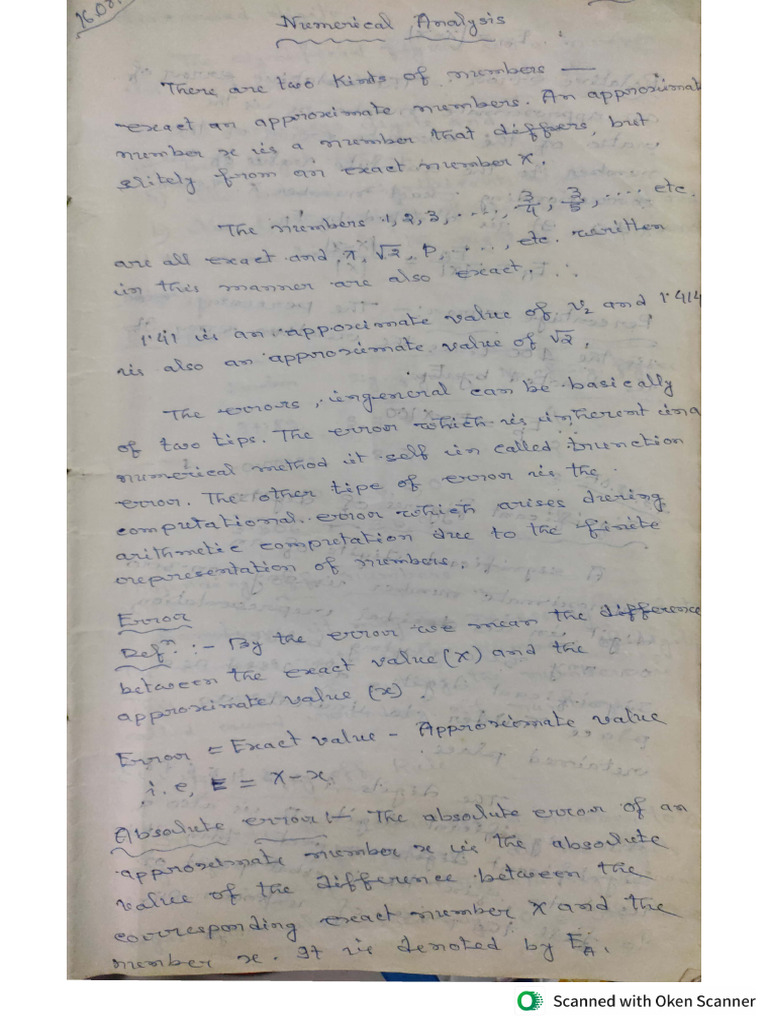 16.02.
Numerical Analysis
There are two kinds of numbers —
exact an approximate numbers. An approximat
number x is a number that differs, but
slitely from an exact number X.
The numbers 1, 2, 3, ...., 3/4, 3/5, .... etc.
are all exact and π, √2, P, ...., etc. written
in this manner are also exact.
1.41 is an approximate value of √2 and 1.414
is also an approximate value of √2.
The errors, ingeneral can be basically
of two tips. The error which is inherent ina
numerical method it self in called trunction
error. The other tipe of error is the
computational error which arises during
arithmetic computation due to the finite
representation of numbers.
Error
Defⁿ: :- By the error we mean the difference
between the exact value (X) and the
approximate value (x).
Error = Exact value - Approximate value
i.e, E = X-x.
Absolute error :- The absolute error of an
approximate number x is the absolute
value of the difference between the
corresponding exact number X and the
number x. It is denoted by E_A.
Scanned with Oken Scanner